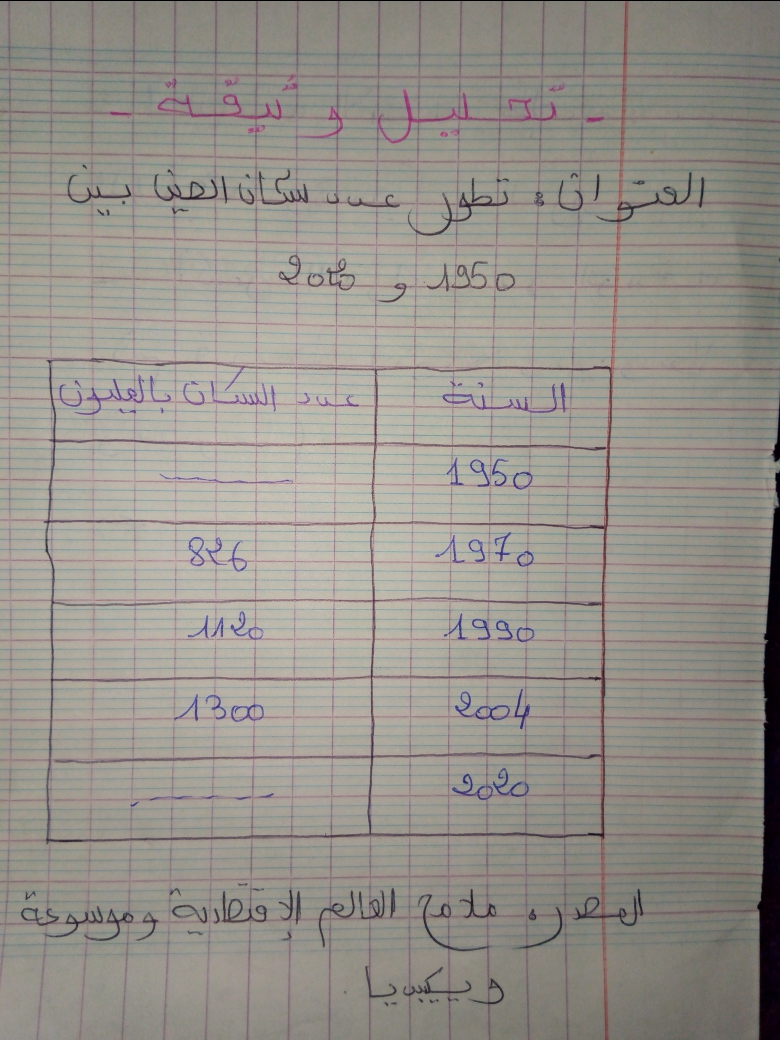 - تحليل وثيقة -
العنوان: تطور عدد سكان الصين بين
1950 و 2020
السنة عدد السكان بالمليون
1950 ———
1970 826
1990 1120
2004 1300
2020 ———
المصدر: ملامح العالم الإقتصادية وموسوعة
ويكيبيديا.